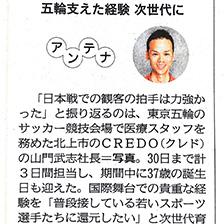 五輪支えた経験 次世代に
アンテナ
「日本戦での観客の拍手は力強か
った」と振り返るのは、東京五輪の
サッカー競技会場で医療スタッフを
務めた北上市のCREDO(クレド)
の山門武志社長=写真。30日まで計
3日間担当し、期間中に37歳の誕生
日も迎えた。国際舞台での貴重な経
験を「普段接している若いスポーツ
選手たちに還元したい」と次世代育